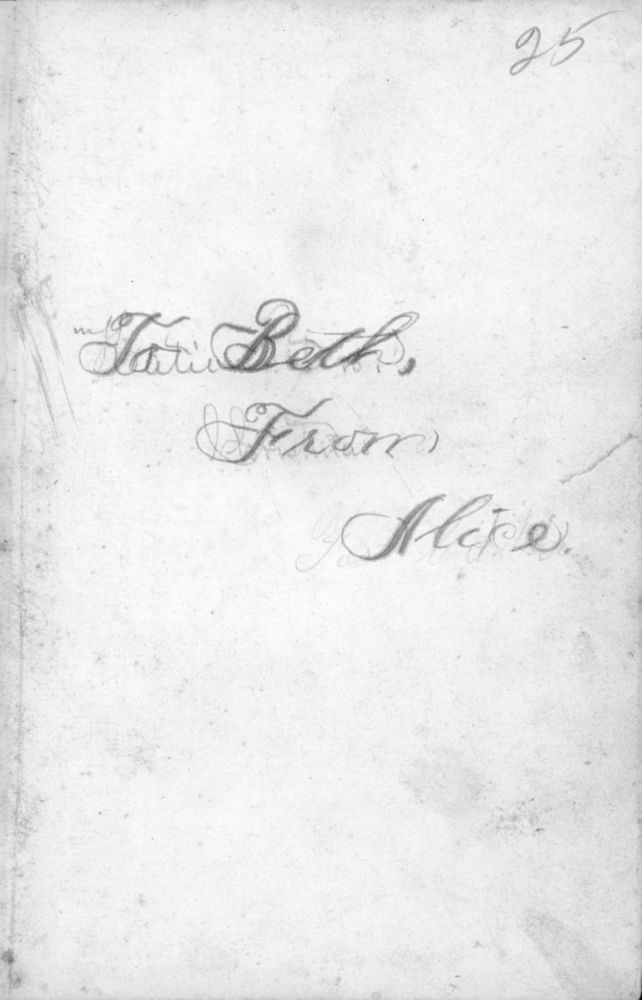 25
To Beth,
From
Alice.